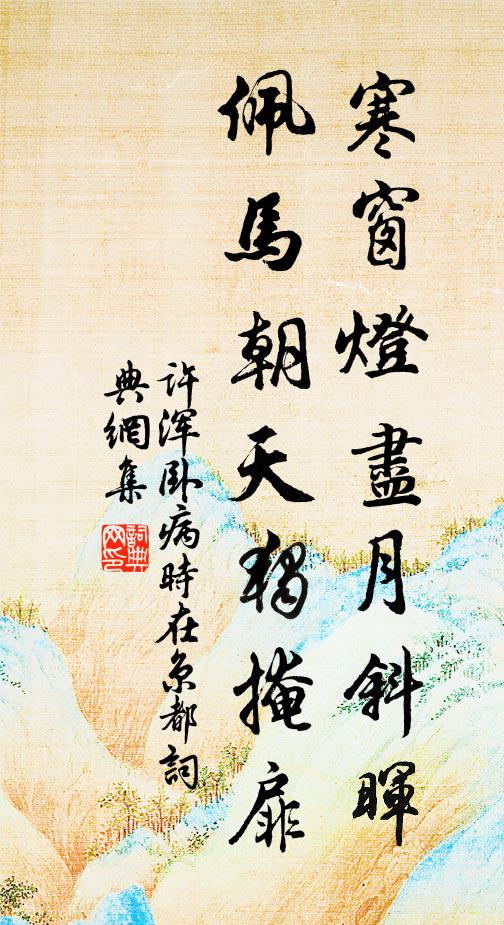 寒窗燈盡月斜暉
佩馬朝天獨掩扉
許渾臥病時在京都詞
典網集
詞典網印